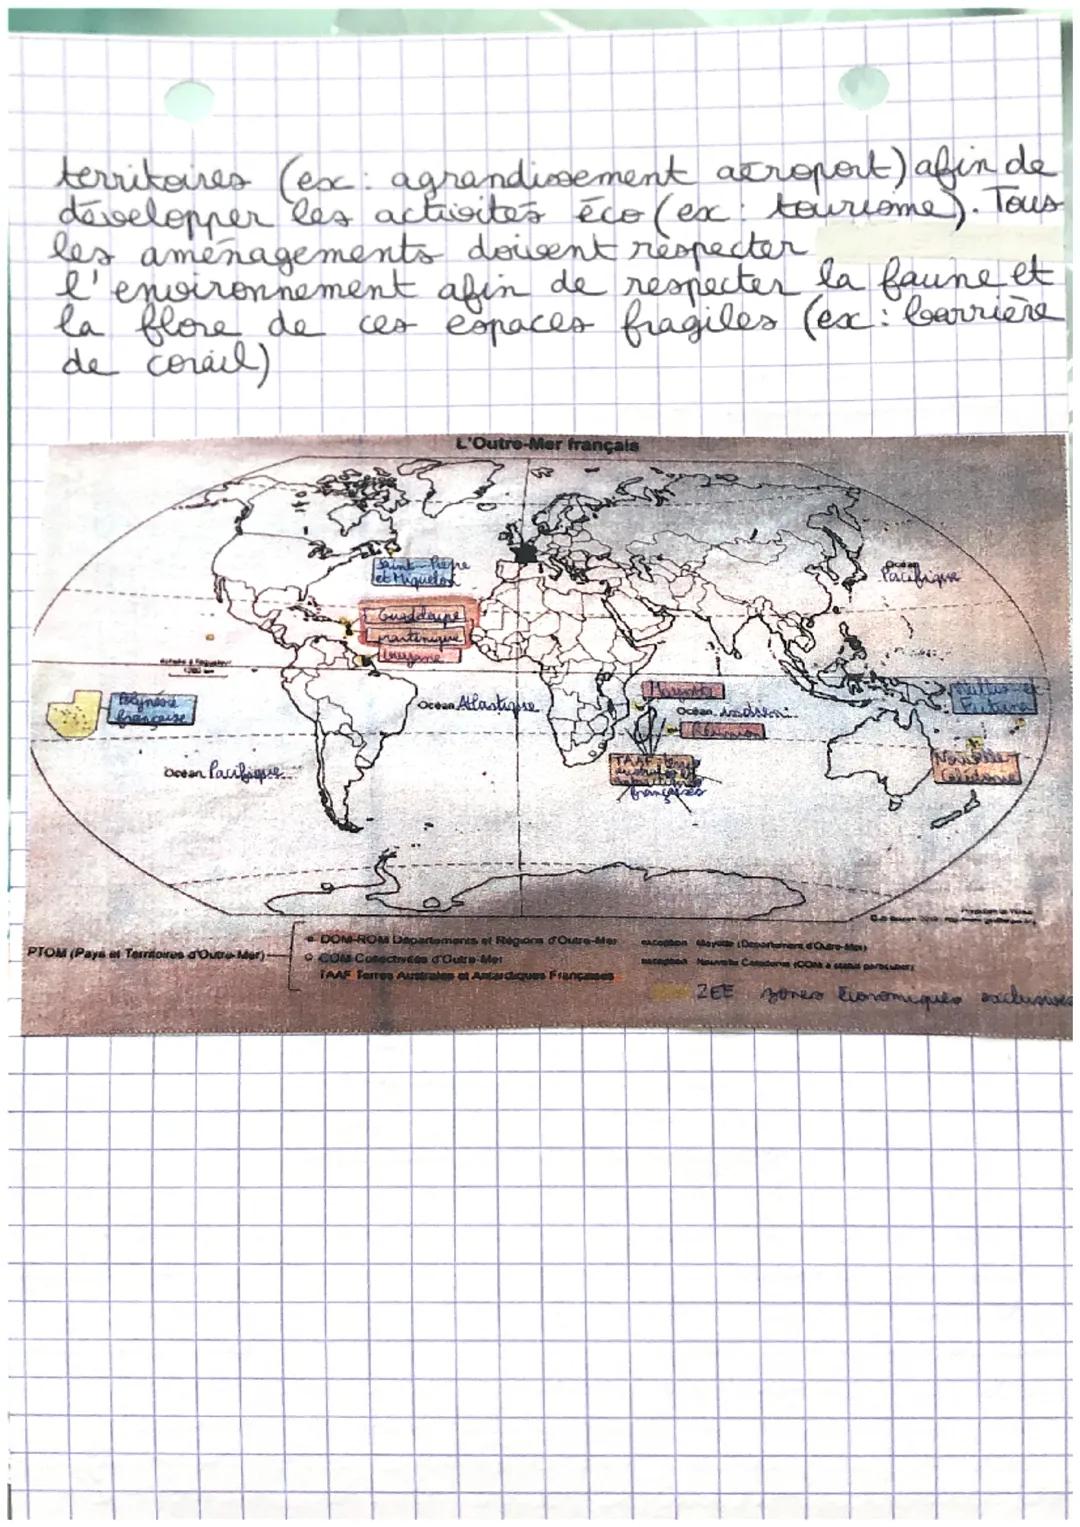 territoires (ex : agrandissement aéroport) afin de
développer les activités éco (ex : tourisme). Tous
les aménagements doivent respecter
l'environnement afin de respecter la faune et
la flore de ces espaces fragiles (ex : barrière
de corail)
L'Outre-Mer français
Saint-Pierre
et Miquelon
Océan
Pacifique
Guadeloupe
martinique
Guyane
Polynésie
française
Océan Atlantique
Mayotte
Océan indien
Réunion
Wallis et
Futuna
Nouvelle
Calédonie
Océan Pacifique
TAAF
françaises
PTOM (Pays et Territoires d'Outre-Mer)
DOM-ROM Départements et Régions d'Outre-Mer
exception Mayotte (Département d'Outre-Mer)
COM Collectivités d'Outre-Mer
exception Nouvelle Calédonie (COM à statut particulier)
TAAF Terres Australes et Antarctiques Françaises
ZEE zones économiques exclusives